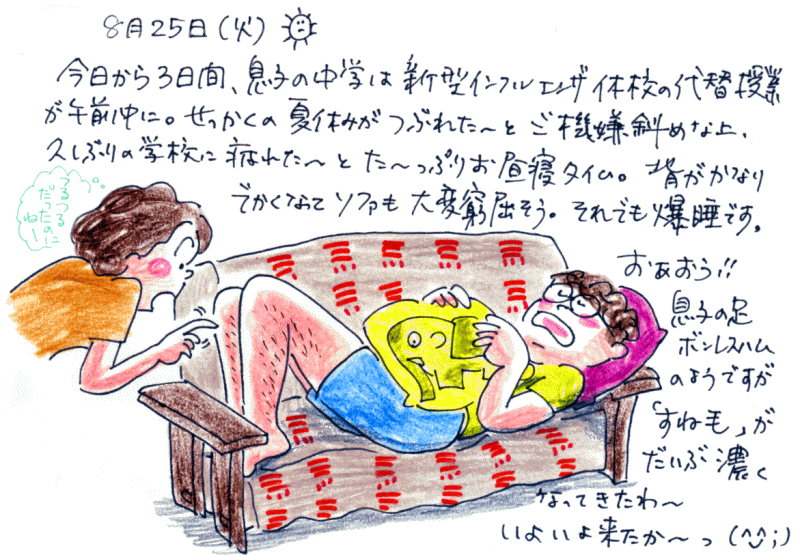 8月25日(火)
今日から3日間、息子の中学は新型インフルエンザ休校の代替授業
が午前中に。せっかくの夏休みがつぶれた〜とご機嫌斜めな上、
久しぶりの学校に疲れた〜とた〜っぷりお昼寝タイム。背がかなり
でかくなってソファも大変窮屈そう。それでも爆睡です。
つるつる
だったのに
ねー
おぉおう!!
息子の足
ボンレスハム
のようですが
「すね毛」が
だいぶ濃く
なってきたわ〜
いよいよ来たか〜っ(^^;)